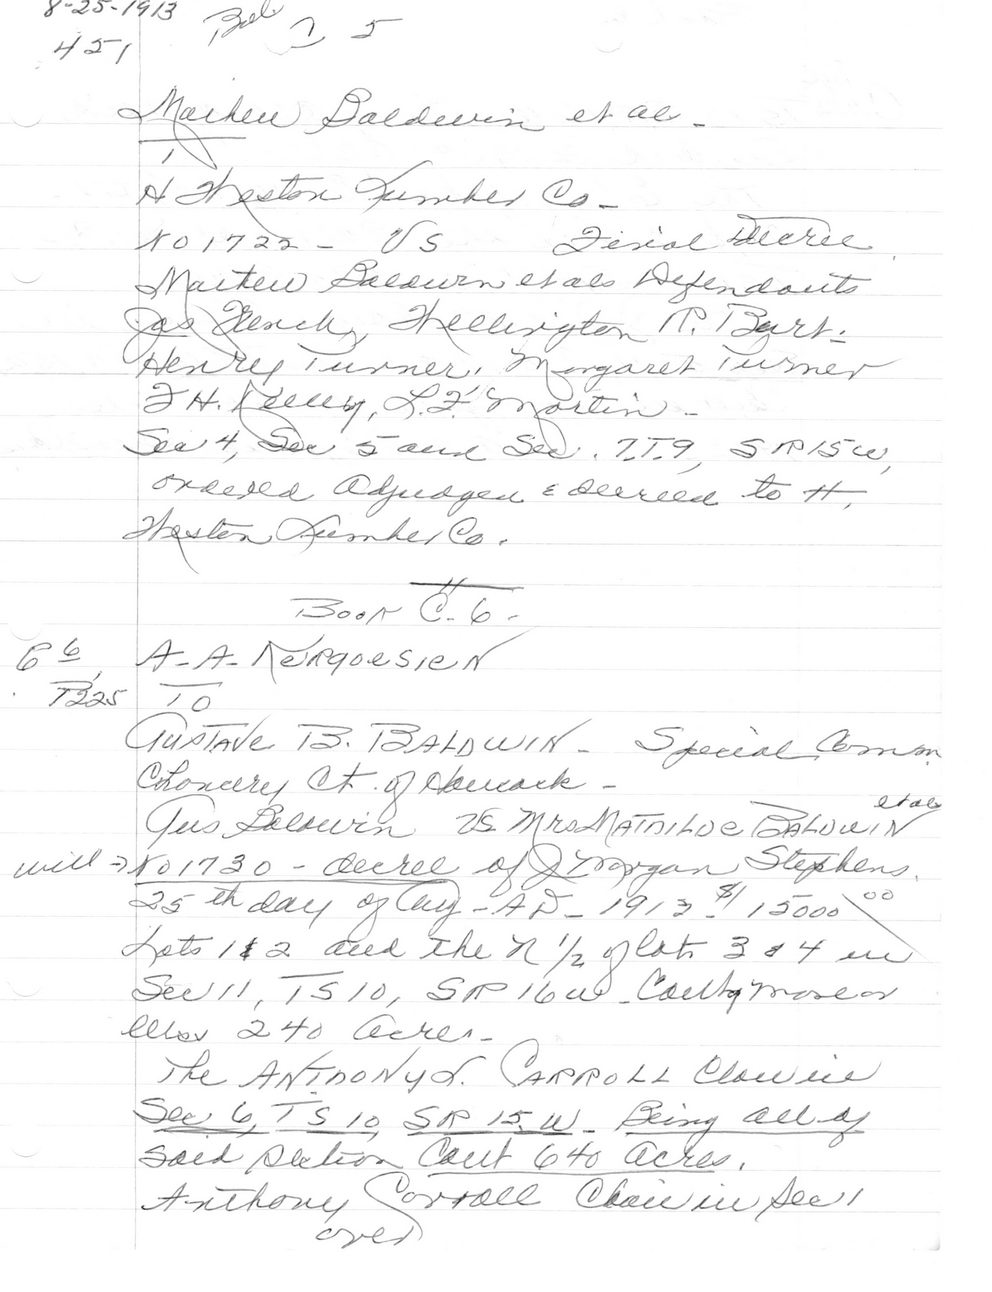 8-25-1913
451 5
Mathew Baldwin et al -
H Weston Lumber Co -
No 1722 - VS Final Decree
Mathew Baldwin et als Defendants
Jas French, Wellington R. Burt -
Henry Turner, Margaret Turner
F H. L. F. Martin -
Sec 4, Sec 5 and Sec. 7. T. 9, S R 15 W,
ordered Adjudged & decreed to H,
Weston Lumber Co.
Book C. 6 -
6 6 A - A - Kergosien
P225 TO
GUSTAVE B. BALDWIN - Special Comm
Chancery Ct. of Hancock -
et als
Gus Baldwin VS Mrs MATHILDE BALDWIN
will → No 1730 - decree of J Morgan Stephens.
25th day of Aug - AD - 1913 $15000 00
Lots 1 & 2 and the N 1/2 of lots 3 & 4 in
Sec 11, TS 10, SR 16 W - Contg more or
less 240 Acres -
The ANTHONY CARROLL Claim in
Sec 6, TS 10, SR 15 W - Being all of
said section Cont 640 Acres.
Anthony Carroll Claim in Sec 1
over